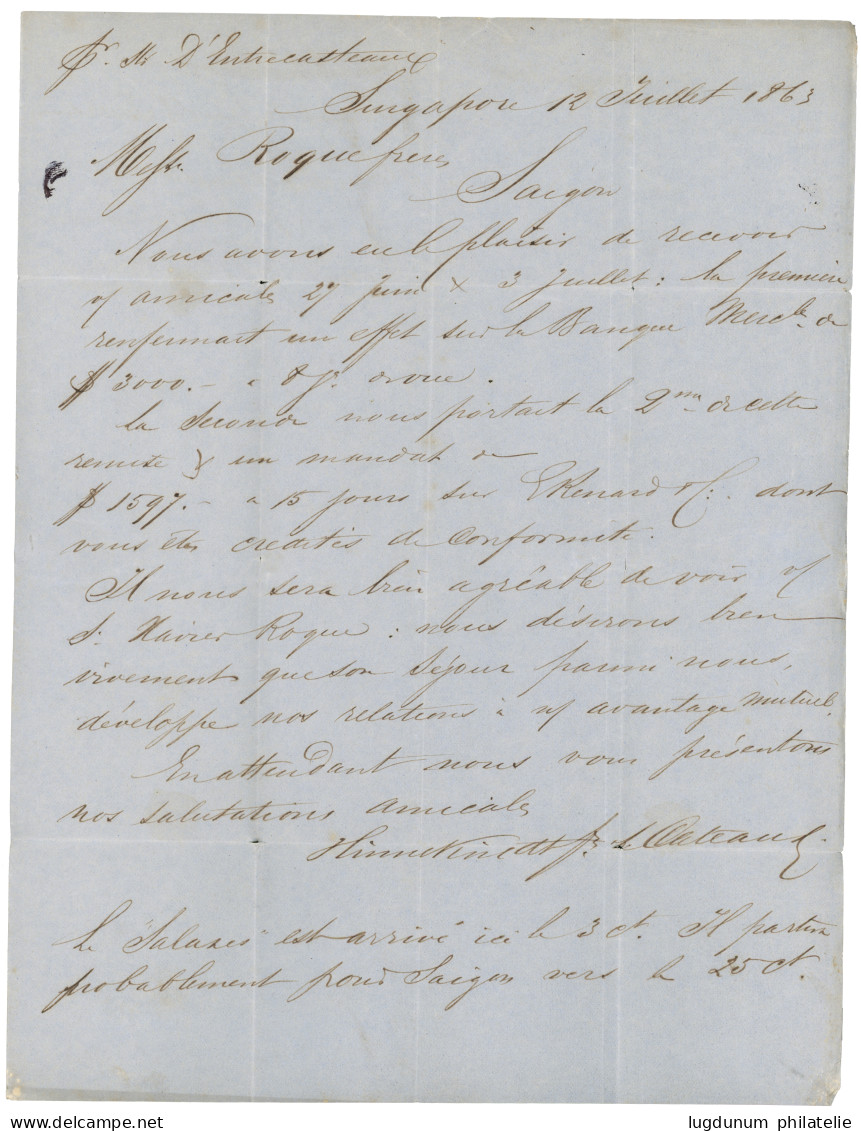 pr. Str D'Entrecasteaux
Singapore 12 Juillet 1863
Messrs. Roque freres
Saigon
Nous avons eu le plaisir de recevoir
v/ amicales 27 Juin & 3 Juillet: la premiere
renfermait un effet sur la Banque Mercle. de
$ 3000.- a 8 jrs. de vue.
La seconde nous portait la 2me. de cette
remise & un mandat de
$ 1597.- a 15 jours sur E Renard & C. dont
vous êtes credités de conformité.
Il nous sera bien agréable de voir v/
Sr. Xavier Roque: nous désirons bien
vivement que son séjour parmi nous,
développe nos relations à n/ avantage mutuel.
En attendant nous vous présentons
nos salutations amicales
frs. & L Cateaux
Le "Salazes" est arrivé ici le 3 ct. Il partira
probablement pour Saigon vers le 25 ct.
lugdunum philatelie